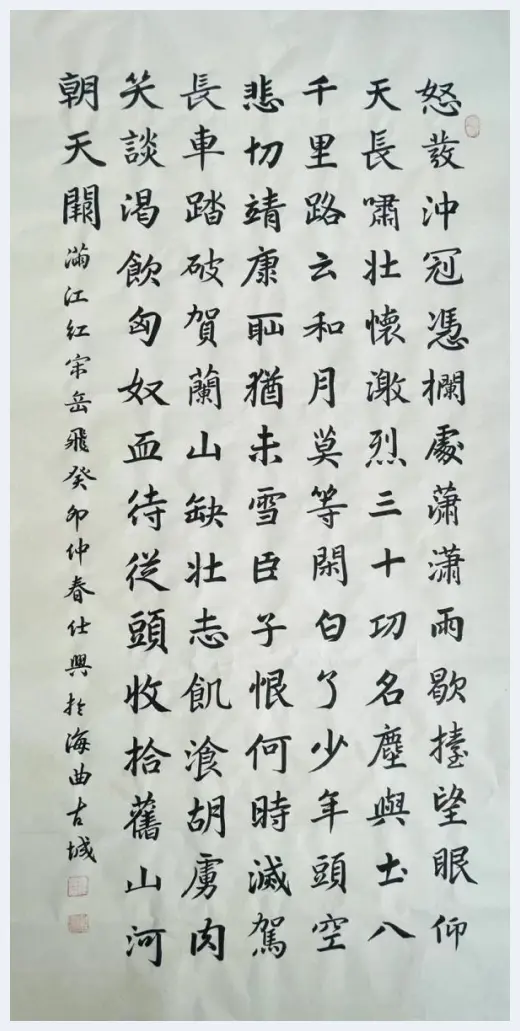 怒发沖冠憑欄處蕭瀟雨歇擡望眼仰
天長嘯壯懷激烈三十功名塵與土八
千里路云和月莫等閑白了少年頭空
悲切靖康恥猶未雪臣子恨何時滅駕
長車踏破賀蘭山缺壯志飢湌胡虜肉
笑談渴飲匈奴血待從頭收拾舊山河
朝天闕滿江紅宋岳飛癸卯仲春仕興於海曲古城